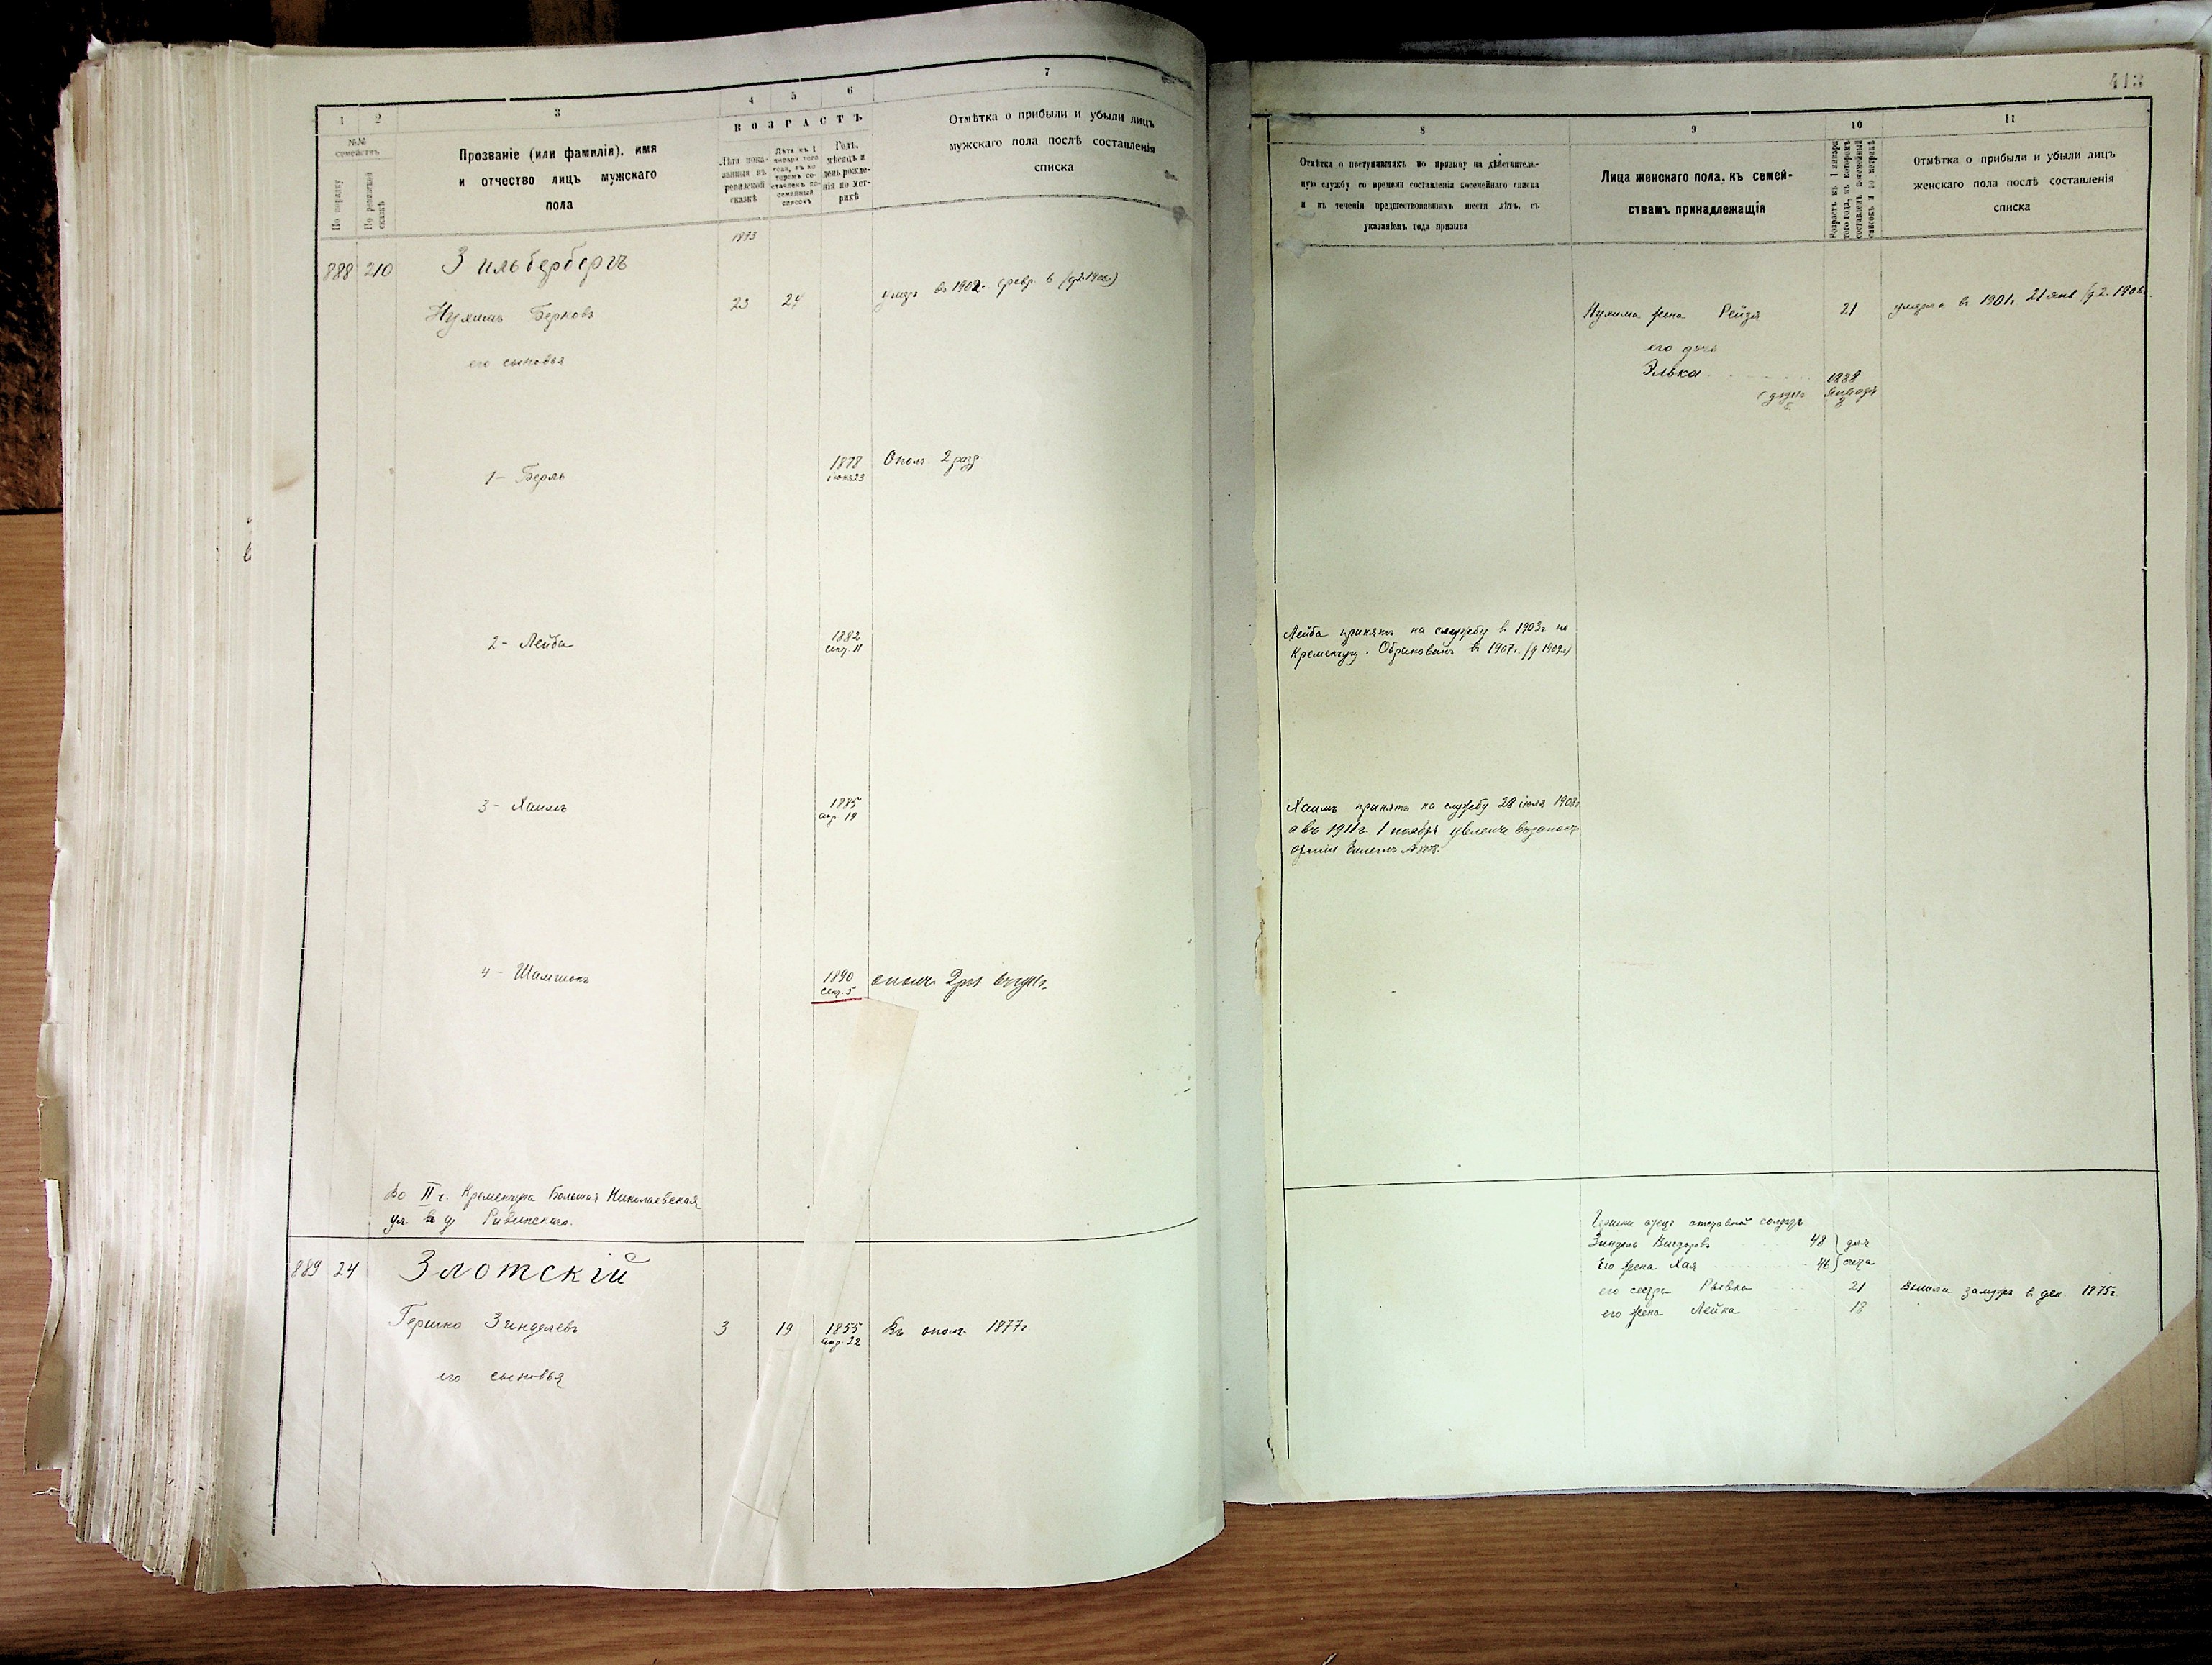 1 2 3 4 5 6 7
№№ семействъ
По порядку
По ревизской сказкѣ
Прозваніе (или фамилія), имя
и отчество лицъ мужскаго
пола
ВОЗРАСТЪ
Лѣта пока-
занныя въ
ревизской
сказкѣ
Лѣта къ 1
января того
года, въ ко-
торомъ со-
ставленъ по-
семейный
списокъ
Годъ,
мѣсяцъ и
день рожде-
нія по мет-
рикѣ
Отмѣтка о прибыли и убыли лицъ
мужскаго пола послѣ составленія
списка
1873
888 210 Зильбербергъ
Нухимъ Берковъ 23 24 умеръ въ 1902. февр. 6
его сыновья
1- Берль 1878 Ополч 2 разр
2- Лейба 1882
сент. 11
3- Хаимъ 1885
апр 19
4- Шамшонъ 1890 ополч 2
сент. 5
Во II ч. Кременчуга Большая Николаевская
ул. въ д
889 24 Злотскій
Гершко Зинделевъ 3 19 1855 Въ ополч. 1877г
апр. 22
его сыновья
413
8 9 10 11
Отмѣтка о поступившихъ по призыву на дѣйствитель-
ную службу со времени составленія посемейнаго списка
и въ теченіи предшествовавшихъ шести лѣтъ, съ
указаніемъ года призыва
Лица женскаго пола, къ семей-
ствамъ принадлежащія
Возрастъ къ 1 января
того года, въ которомъ
составленъ посемейный
списокъ и по метрикѣ
Отмѣтка о прибыли и убыли лицъ
женскаго пола послѣ составленія
списка
Нухима жена Рейзя 21 умерла въ 1901г. 21 янв
его дочь
Элька 1888
января
8
Лейба принятъ на службу въ 1903г по
Кременчугу. Обракованъ въ 1907г.
Хаимъ принятъ на службу 28 іюля
а въ 1911г. 1 ноября
арміи
Гершки отецъ отставной солдатъ
Зиндель 48 для
Его жена Хая 46 счета
его сестра Рывка 21 Вышла замужъ в дек. 1875г.
его жена Лейка 18